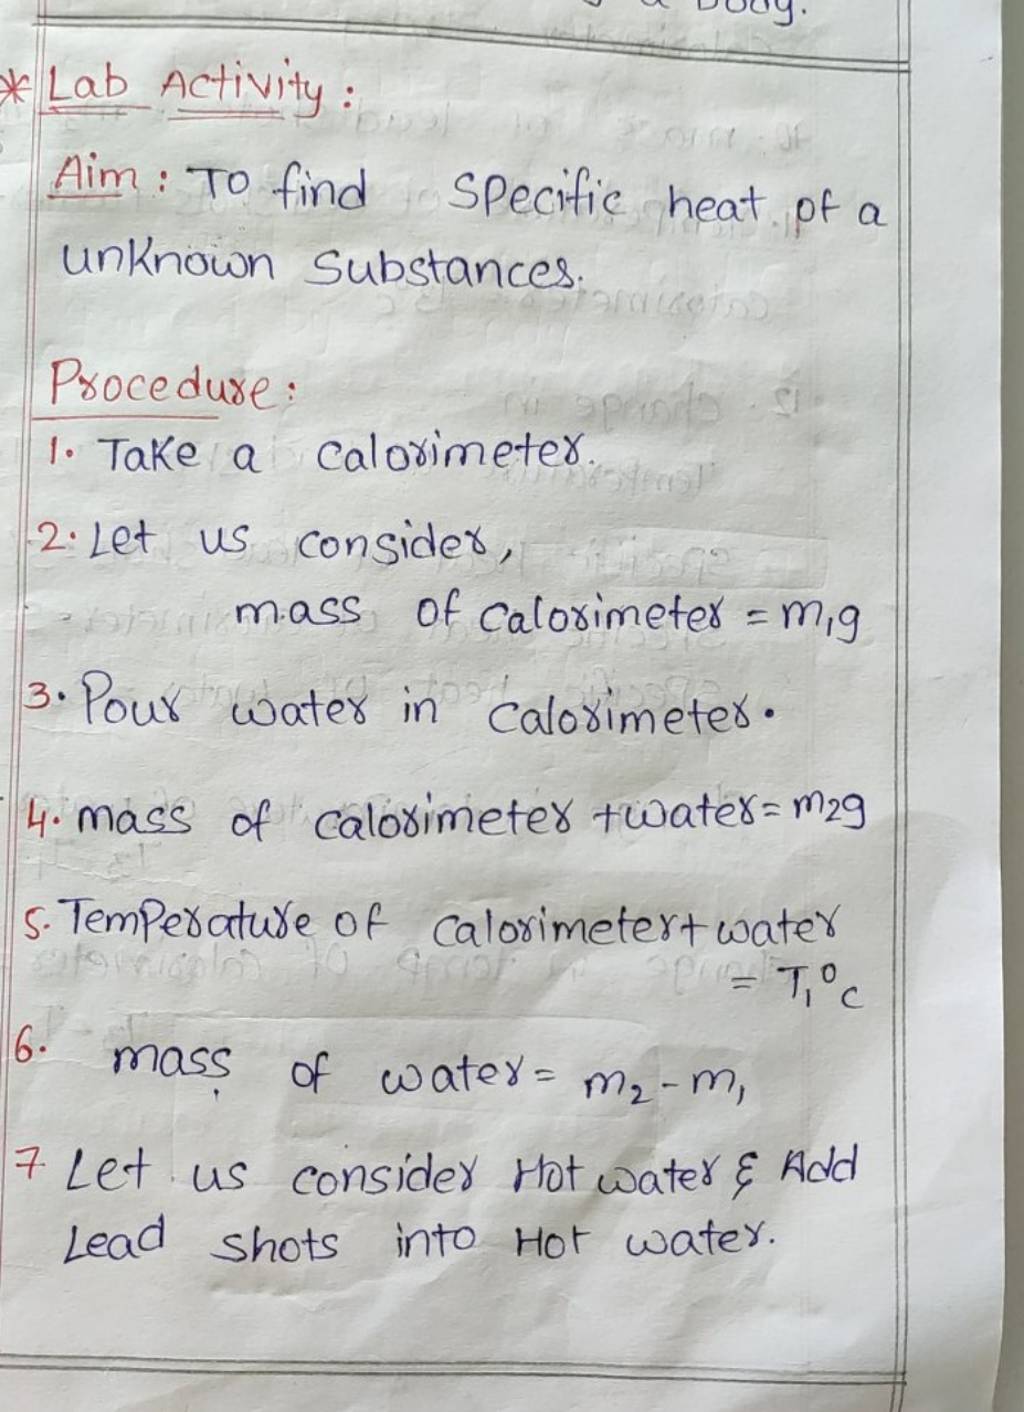 * Lab Activity :
Aim : To find Specific heat of a
unknown Substances.
Procedure :
1. Take a calorimeter.
2. Let us consider,
mass of calorimeter = m₁g
3. Pour water in calorimeter.
4. mass of calorimeter + water = m2g
5. Temperature of calorimeter + water
= T₁°c
6. mass of water = m₂ - m₁
7 Let us consider Hot water & Add
Lead shots into Hot water.